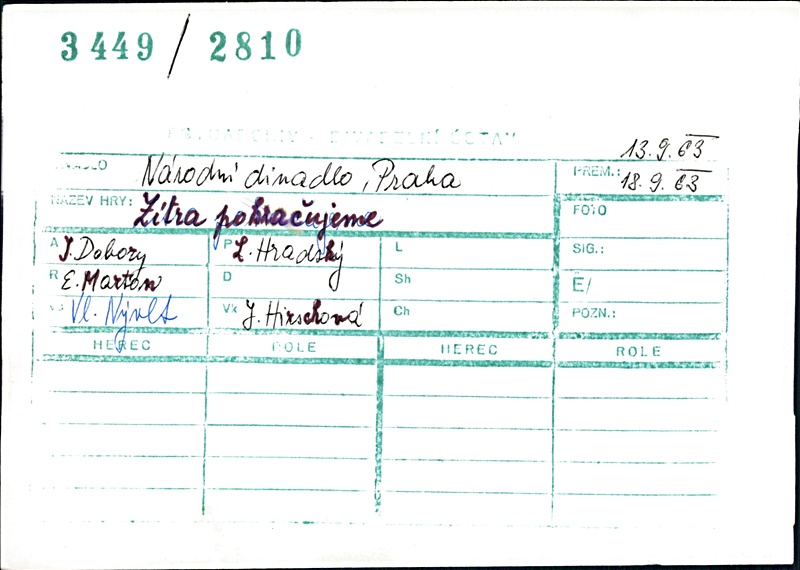 3449 / 2810
FOTOARCHIV - DIVADELNÍ ÚSTAV
13.9.63
DIVADLO Národní divadlo, Praha PREM.: 18.9.63
NÁZEV HRY: Zítra pokračujeme FOTO
A J. Dobozy P L. Hradský L SIG.:
R E. Marton D Sh E/
Vl. Nývlt Vk J. Hirschová Ch POZN.:
HEREC ROLE HEREC ROLE